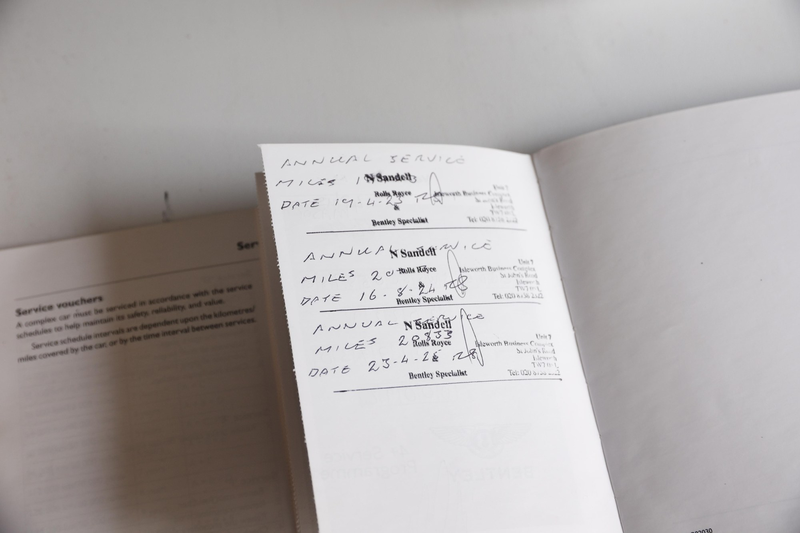 Service vouchers
A complex car must be serviced in accordance with the service
schedules to help maintain its safety, reliability, and value.
Service schedule intervals are dependent upon the kilometres/
miles covered by the car, or by the time interval between services.
ANNUAL SERVICE
N Sandell
MILES
Rolls Royce
Isleworth Business Complex
DATE 19-4-23
&
Bentley Specialist
Tel: 020
ANNUAL SERVICE
N Sandell
MILES 20
Rolls Royce
Unit 7
Isleworth Business Complex
St John's Road
Isleworth
DATE 16-8-24
&
Bentley Specialist
Tel: 020
ANNUAL SERVICE
N Sandell
MILES 20833
Rolls Royce
Unit 7
Isleworth Business Complex
St John's Road
Isleworth
DATE 23-4-
&
Bentley Specialist
Tel: 020